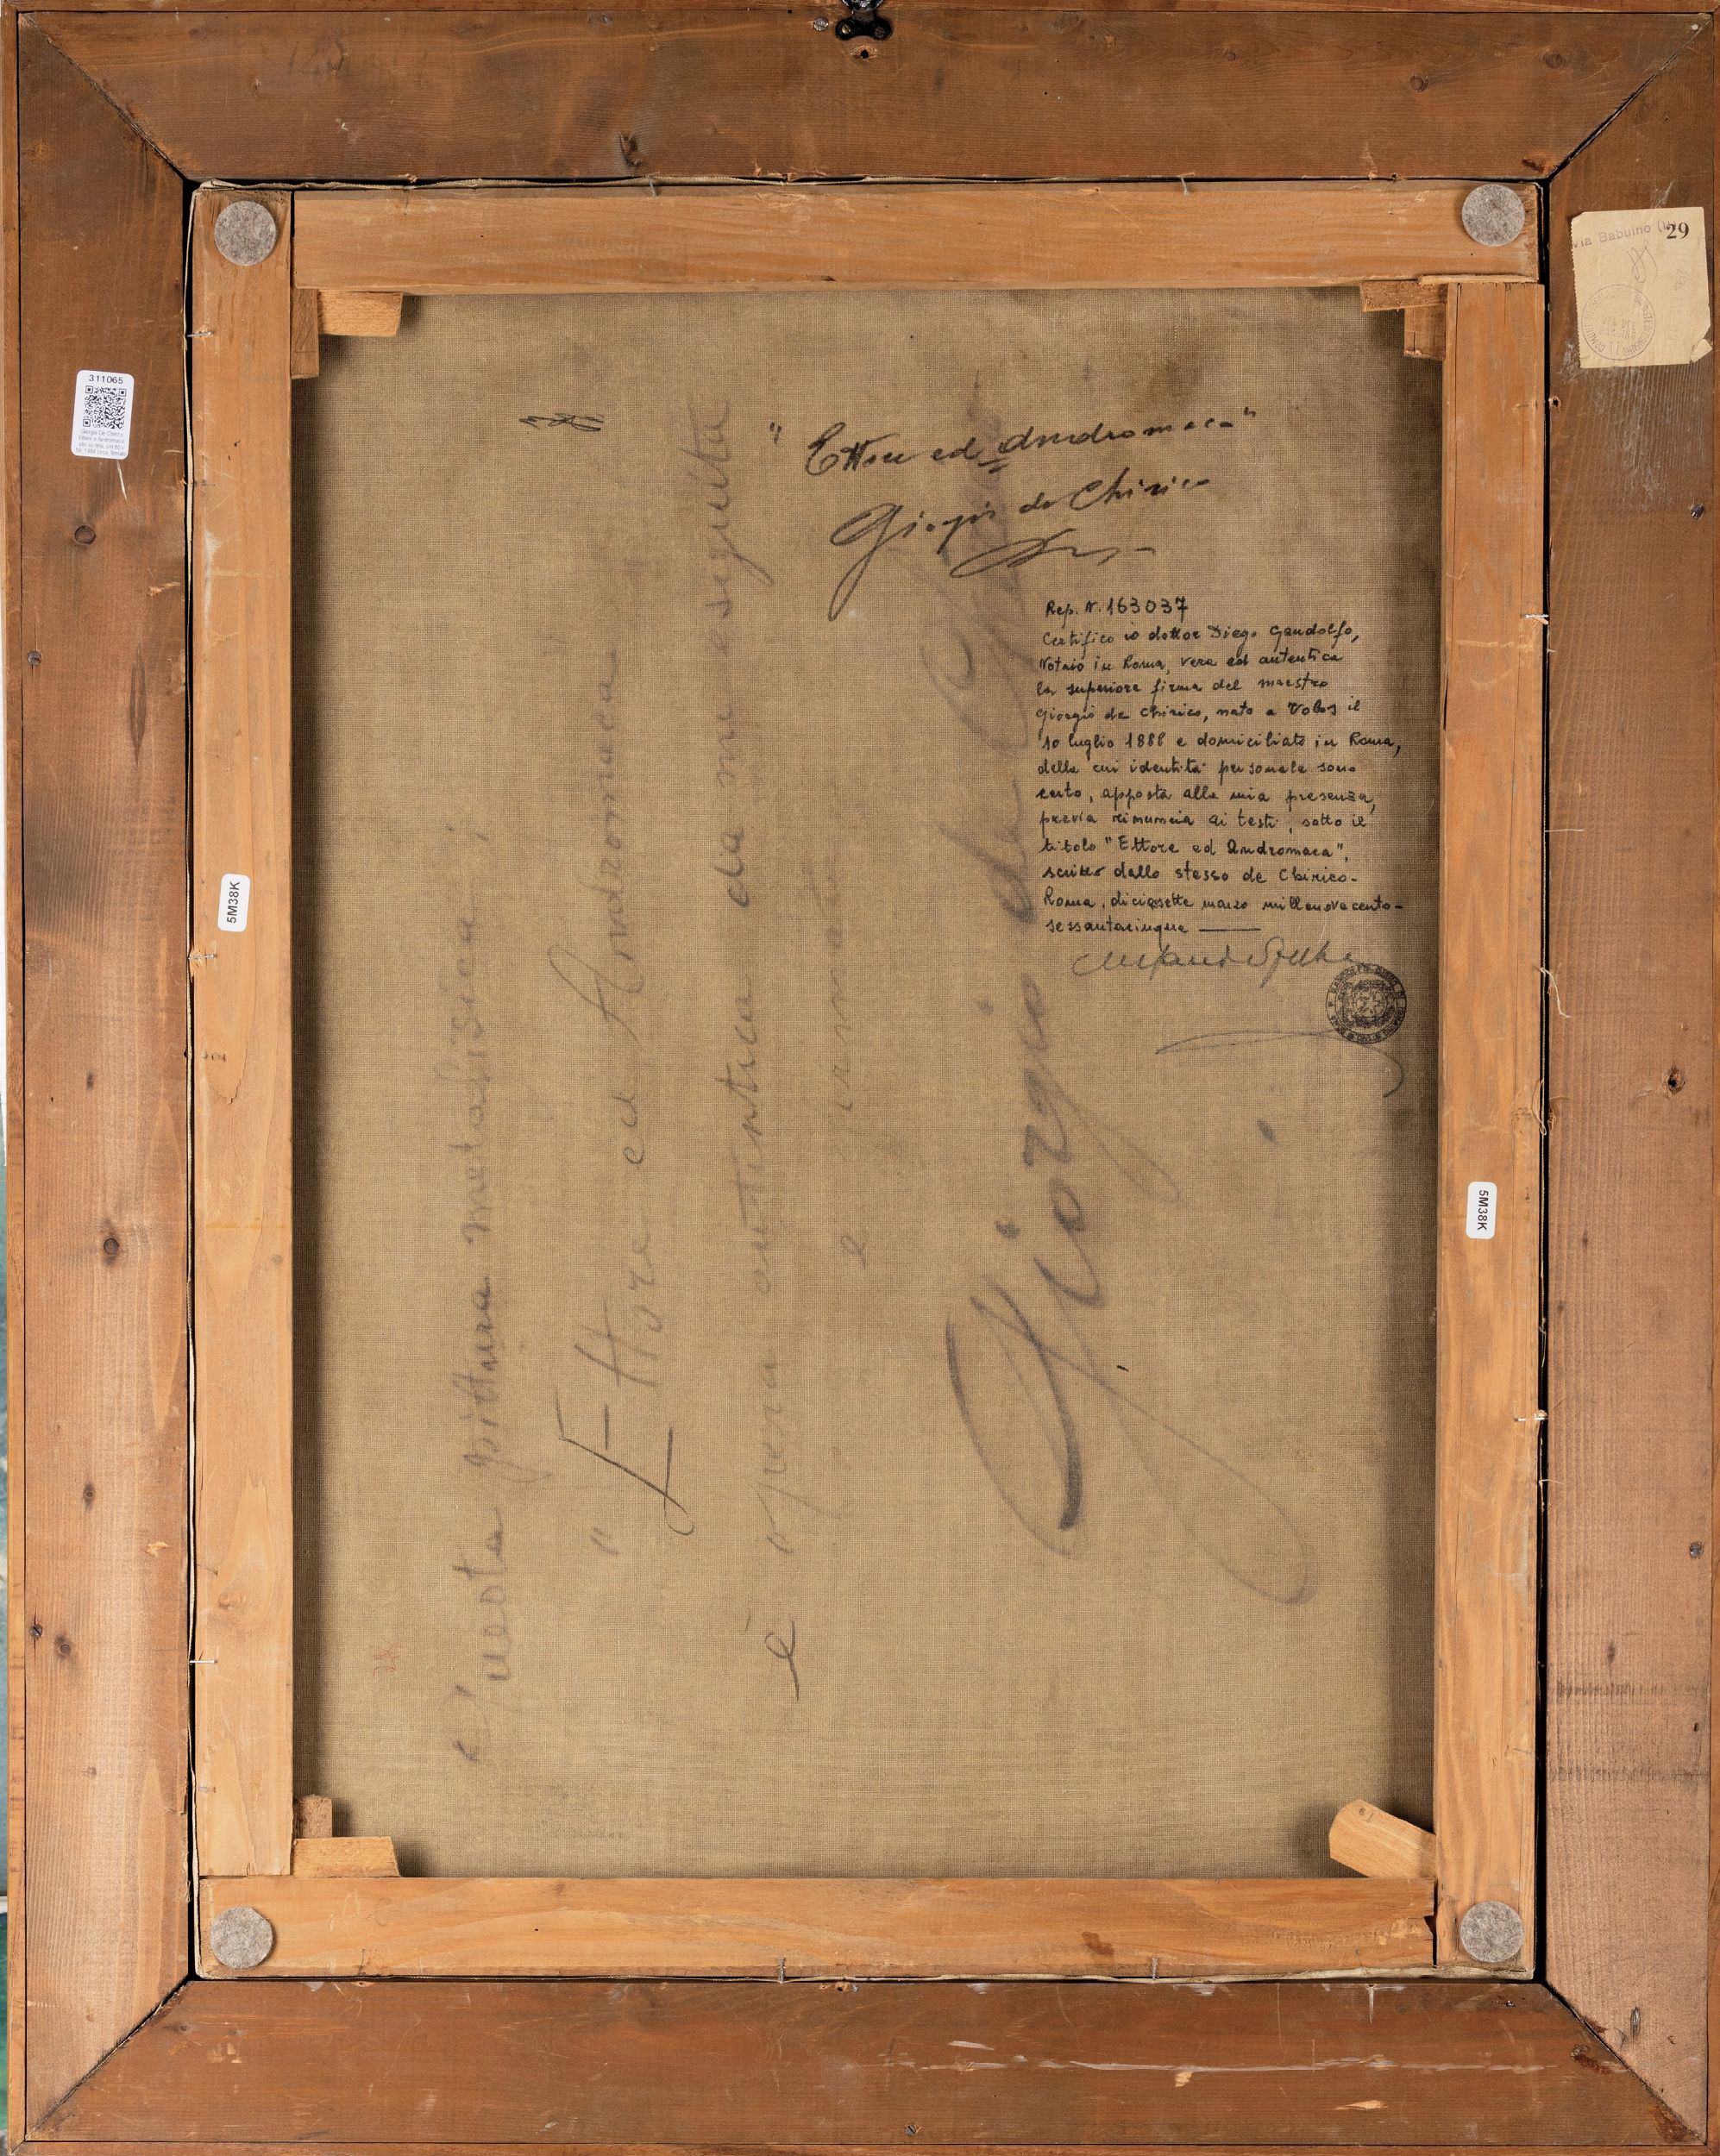 Via Babuino
29
311065
Giorgio De Chirico,
Ettore e Andromaca,
5M38K
5M38K
"Ettore ed Andromaca"
Giorgio de Chirico
Rep. N. 163037
Certifico io dottor Diego Gandolfo,
Notaio in Roma, vera ed autentica
la superiore firma del maestro
Giorgio de Chirico, nato a Volos il
10 luglio 1888 e domiciliato in Roma,
della cui identità personale sono
certo, apposta alla mia presenza,
previa rinuncia ai testi, sotto il
titolo "Ettore ed Andromaca",
scritto dallo stesso de Chirico-
Roma, diciassette marzo millenovecento-
sessantacinque
Questa pittura metafisica:
"Ettore ed Andromaca
è opera autentica da me eseguita
e firmata
Giorgio de Chirico